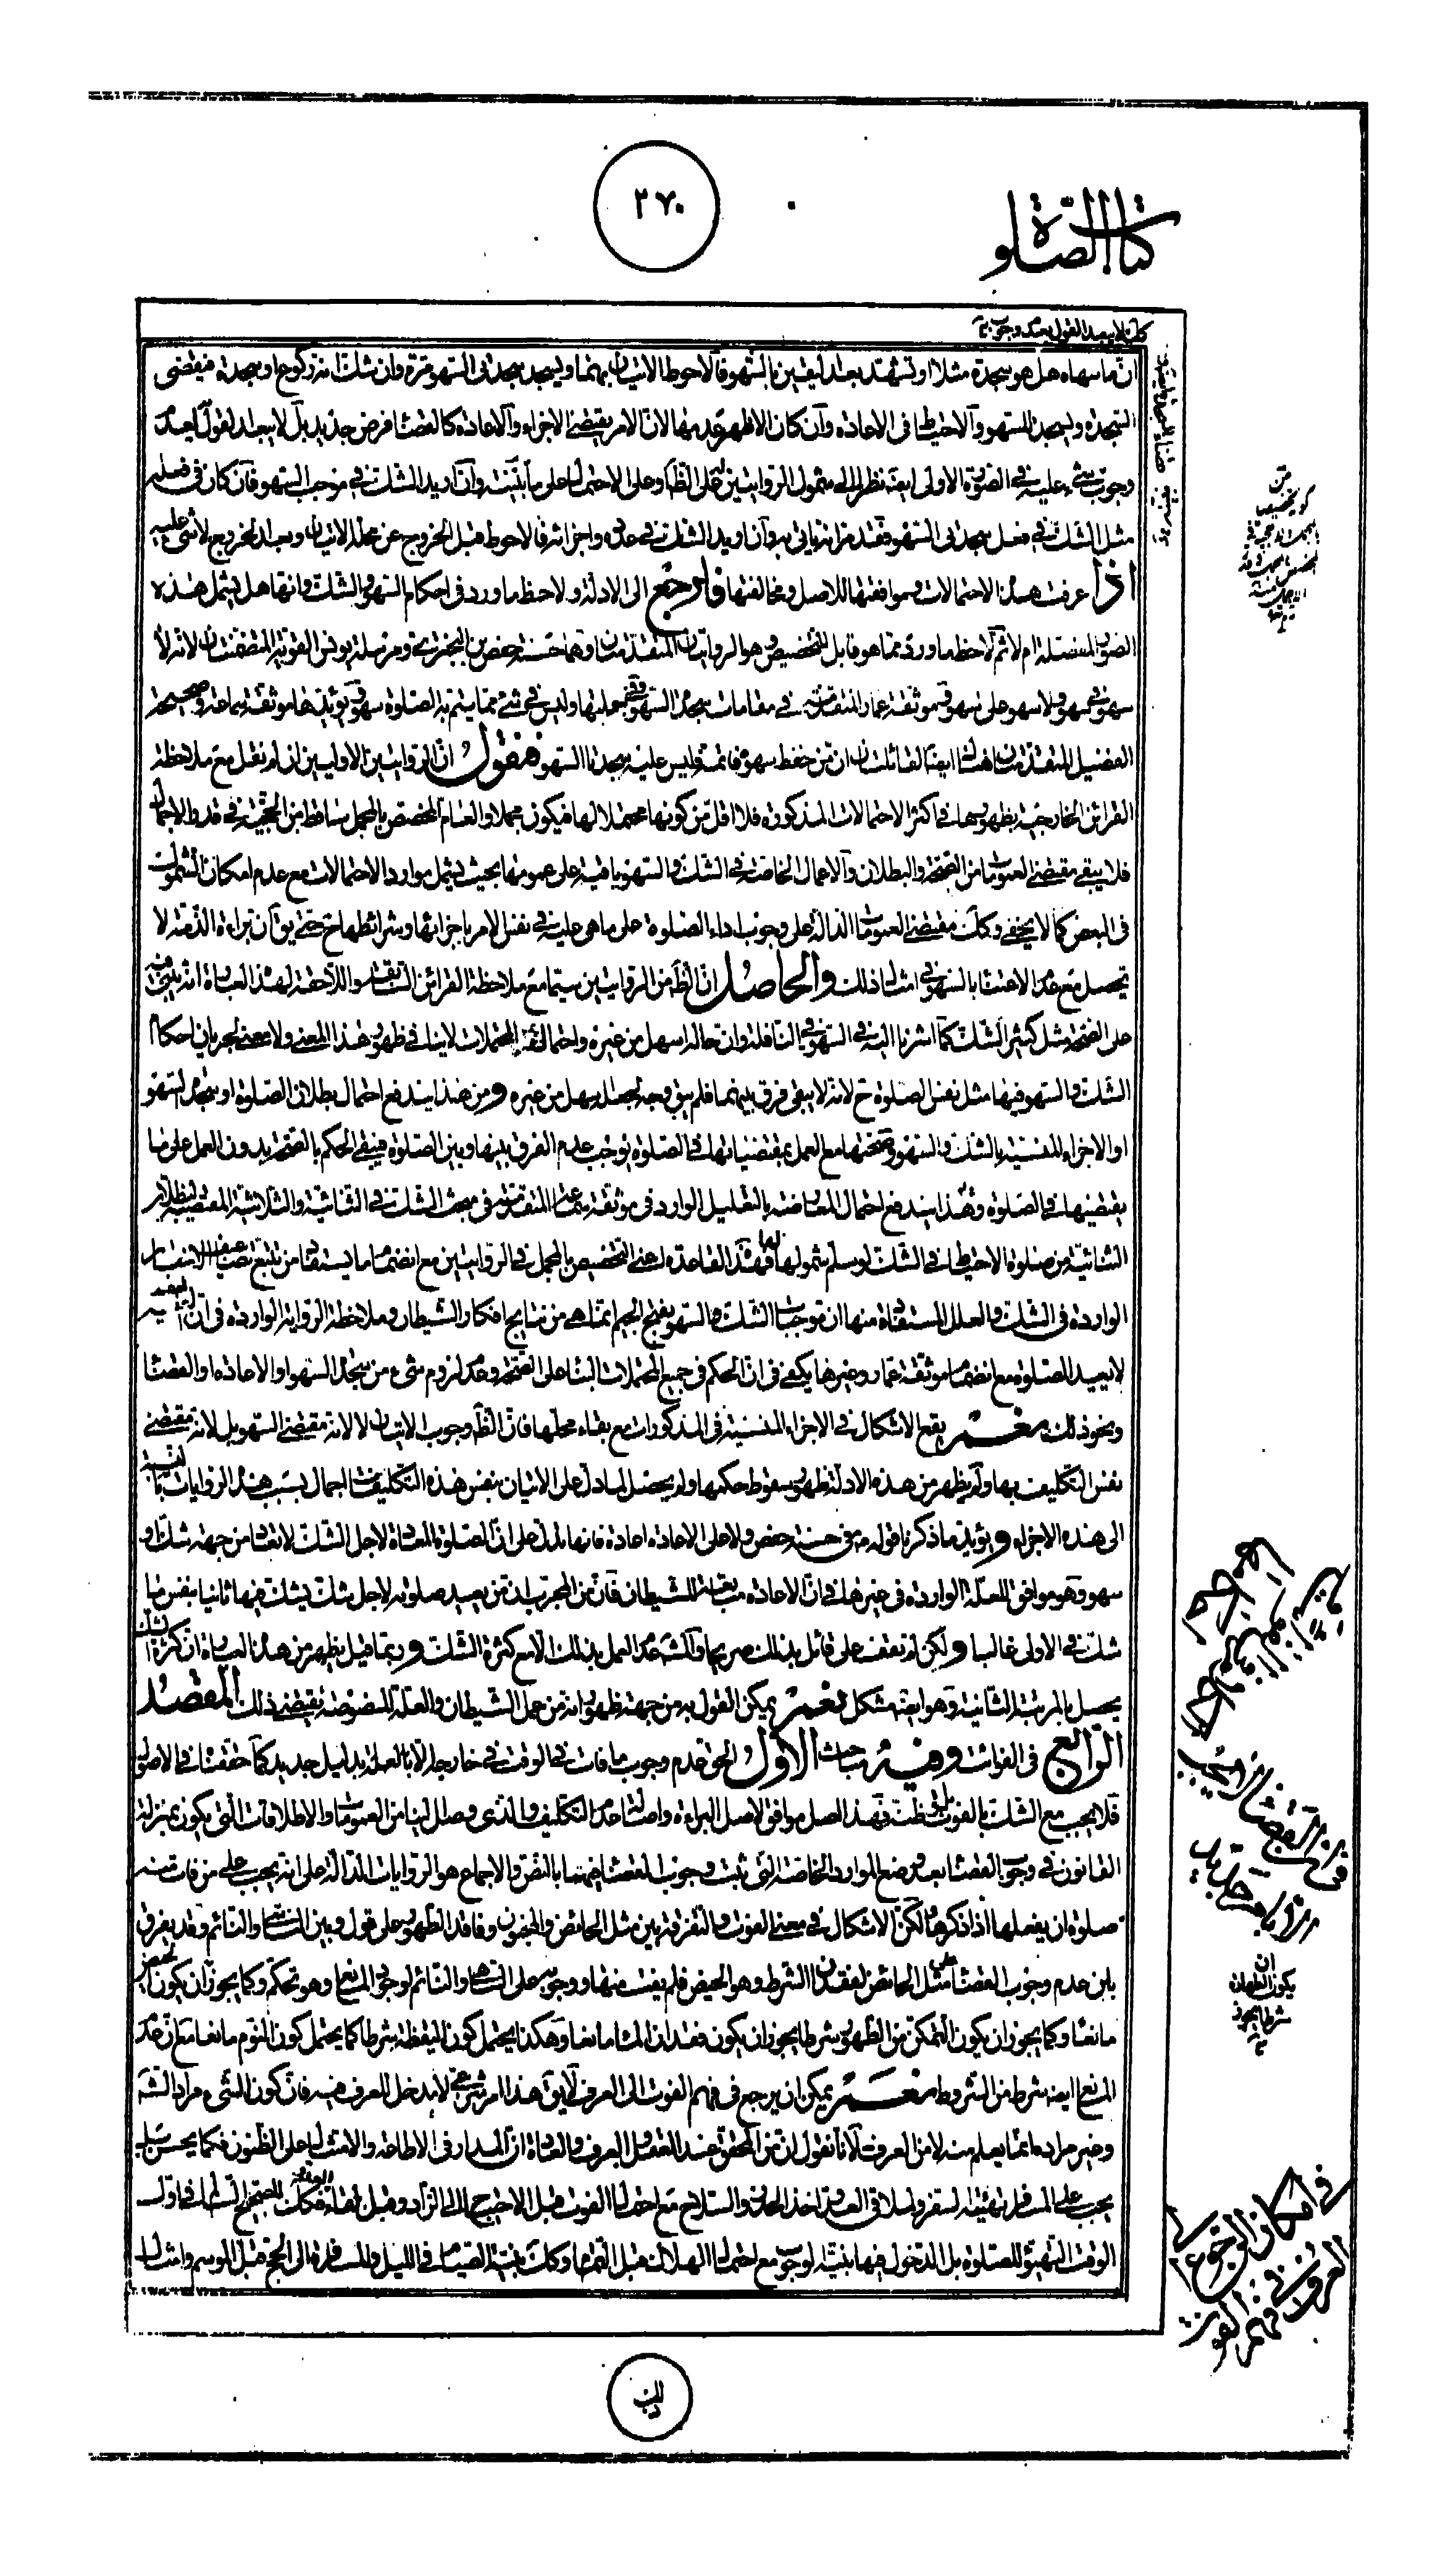 ٢٧٠
كتاب الصلوة
ان ما سهاه هل هو سجدة مثلا او تشهد بعد اليقين بالسهو فالاحوط الاتيان بهما ويسجد سجدتى السهو مرة وان شك انه ركوع او سجدة فيقضى
السجدة ويسجد للسهو والاحتياط فى الاعادة وان كان الاظهر عدمها لان الامر يقتضى الاجزاء والاعادة كالقضاء فرض جديد بل لا يبعد القول بعدم
وجوب شىء عليه فى الصورة الاولى ايضا نظرا الى شمول الروايتين على الظاهر وعلى الاحتمال على ما بيّنته وان اريد الشك فى موجب السهو فان كان فى فعله
مثل الشك فى فعل سجدتى السهو فقد مر انه ياتى به وان اريد الشك فى عدده او اجزائه فالاحوط قبل الخروج عن محله الاتيان وبعد الخروج لا شىء عليه
اذا عرفت هذه الاحتمالات وموافقتها للاصل ومخالفتها فارجع الى الادلة ولاحظ ما ورد فى احكام السهو والشك وانها هل يشمل هذه
الصور المفصلة ام لا ثم لاحظ ما ورد مما هو قابل للتخصيص وهو الروايتان المتقدمتان وهما حسنة حفص بن البخترى ومرسلة يونس القوية المتضمنتان لانه لا
سهو فى سهو ولا سهو على سهو وموثقة عمار المتقدمة فى مقامات سجود السهو وليس فى شىء مما يتم به الصلوة سهو ويؤيدها موثقة سماعة وصحيحة
الفضيل المتقدمتان هناك ايضا القائلتان ان من حفظ سهوه فاتمه فليس عليه سجدتا السهو فنقول ان الروايتين الاوليين ان لم نقل مع ملاحظة
القرائن الخارجية بظهورهما فى اكثر الاحتمالات المذكورة فلا اقل من كونها محتملا لها فيكون مجملا والعام المخصص بالمجمل ساقط من الحجية فى قدر الاجمال
فلا يبقى مقتضى العمومات من الصحة والبطلان والاعمال الخاصة فى الشك والسهو باقية على عمومها بحيث يشمل موارد الاحتمالات مع عدم امكان الشمول
فى البعض كما لا يخفى وكذلك مقتضى العمومات الدالة على وجوب اداء الصلوة على ما هى عليه فى نفس الامر باجزائها وشرائطها ح حتى يق ان براءة الذمة لا
تحصل مع عدم الاعتناء بالسهو فى امثال ذلك والحاصل ان الظاهر من الروايتين سيما مع ملاحظة القرائن السابقة واللاحقة لهذه العبارة انه يبنى فيه
على الصحة مثل كثير الشك كما اشرنا اليه فى السهو فى النافلة وان حاله اسهل من غيره واحتمال بقية المحتملات لا ينافى ظهور هذا المعنى ولا معنى لجريان احكام
الشك والسهو فيها مثل نفس الصلوة ح لانه لا يبقى فرق بينهما فلم يبق وجه لجعله سهل من غيره ومن هذا يندفع احتمال بطلان الصلوة او سجود السهو
او الاجزاء المنسية بالشك والسهو وصحتها مع العمل بمقتضياتها فى الصلوة يوجب عدم الفرق بينها وبين الصلوة فيبقى الحكم بالصحة بدون العمل على ما
يقتضيها فى الصلوة وبهذا يندفع احتمال المعارضة بالتعليل الوارد فى موثقة سماعة المتقدمة فى مبحث الشك فى الثنائية والثلاثية المقتضية لبطلان
الثنائية من صلوة الاحتياط فى الشك لو سلم شمولها لها فهذه القاعدة اعنى التخصيص بالمجمل فى الروايتين مع انضمام ما يستفاد من تتبع تضاعيف الاخبار
الواردة فى الشك والعلل المستفادة منها ان موجبات الشك والسهو بفتح الجيم انما هى من نتايج افكار الشيطان وملاحظة الرواية الواردة فى ان الفقيه
لا يعيد الصلوة مع انضمام موثقة عمار وغيرها يكفى فى ان الحكم فى جميع المحتملات البناء على الصحة وعدم لزوم شىء من سجود السهو او الاعادة او القضاء
ونحو ذلك نعم يقع الاشكال فى الاجزاء المنسية فى المذكورات مع بقاء محلها فان الظاهر وجوب الاتيان لا لانه مقتضى السهو بل لانه مقتضى
نفس التكليف بها ولم يظهر من هذه الادلة ظهور سقوط حكمها ولم يحصل لما دل على الاتيان بنفس هذه التكليفات اجمال بسبب هذه الروايات بالنسبة
الى هذه الاجزاء ويؤيد ما ذكرنا قوله ع فى حسنة حفص ولا على الاعادة اعادة فانها تدل على ان الصلوة المعادة لاجل الشك لا تعاد من جهة شك او
سهو وهو موافق للعلة الواردة فى غيرها فى ان الاعادة متابعة للشيطان فان من المجرب ان من يعيد صلوته لاجل شك يشك فيها ثانيا بنفس ما
شك فى الاولى غالبا ولكن لم نقف على قائل بذلك صريحا والاشهر عدم العمل بذلك الا مع كثرة الشك وربما قيل يظهر من هذه العبارة ان كثرة الشك
يحصل بالمرتبة الثانية وهو ايضا مشكل نعم يمكن القول به من جهة ظهور انه من عمل الشيطان والعلة المنصوصة يقتضى ذلك المقصد
الرابع فى الفوائت وفيه مباحث الاول الحق عدم وجوب ما فات فى الوقت فى خارجه الا بالعلة بدليل جديد كما حققنا فى الاصول
فلا يجب مع الشك بالفوت فهذا اصل موافق لاصل البراءة واصالة عدم التكليف والذى وصل الينا من العمومات والاطلاقات التى يكون بمنزلة
القانون فى وجوب القضاء بعد وضع الموارد الخاصة التى ثبت وجوب القضاء فيها بالنص والاجماع هو الروايات الدالة على انه يجب على من فات منه
صلوة ان يفعلها اذا ذكرها لكن الاشكال فى معنى الفوت والتفرقة بين مثل الحائض والمجنون وفاقد الطهور على قول وبين الناسى والنائم وقد يفرق
بان عدم وجوب القضاء على مثل الحائض لفقدان الشرط وهو الحيض فلم يفت منها ووجوبه على الساهى والنائم لوجود المانع وهو تحكم وكما يجوز ان يكون الحيض
مانعا وكما يجوز ان يكون التمكن من الطهور شرطا يجوز ان يكون فقدان الماء مانعا وهكذا يحتمل كون اليقظة شرطا كما يحتمل كون النوم مانعا مع ان عدم
المانع ايضا شرط من الشروط نعم يمكن ان يرجع فى فهم الفوت الى العرف لا يق هذا امر شرعى لا يدخل العرف فيه فان كون الشىء مراد الشارع
وغير مراده انما يعلم منه لا من العرف لانا نقول ان من المحقق عند العقول والعرف والعادة ان المدار فى الاطاعة والامتثال على الظنون فكما يحسن بل
يجب على المسافر تهيئة السفر اخذ الزاد والسلاح مع احتمال الفوت قبل الاحتياج الى الزاد وقبل لقاء العدو فكذلك للصحيح السالم فى اول
الوقت التهيؤ للصلوة بل الدخول فيها بنية الوجوب مع احتمال الهلاك قبل التمام وكذلك نية الصيام فى الليل والمسافرة الى الحج قبل الموسم وامثال
فى ان القضاء انما يجب بامر جديد
ان
يكون الطهارة
شرطا يجوز
فى امكان الرجوع الى
العرف فى فهم الفوت